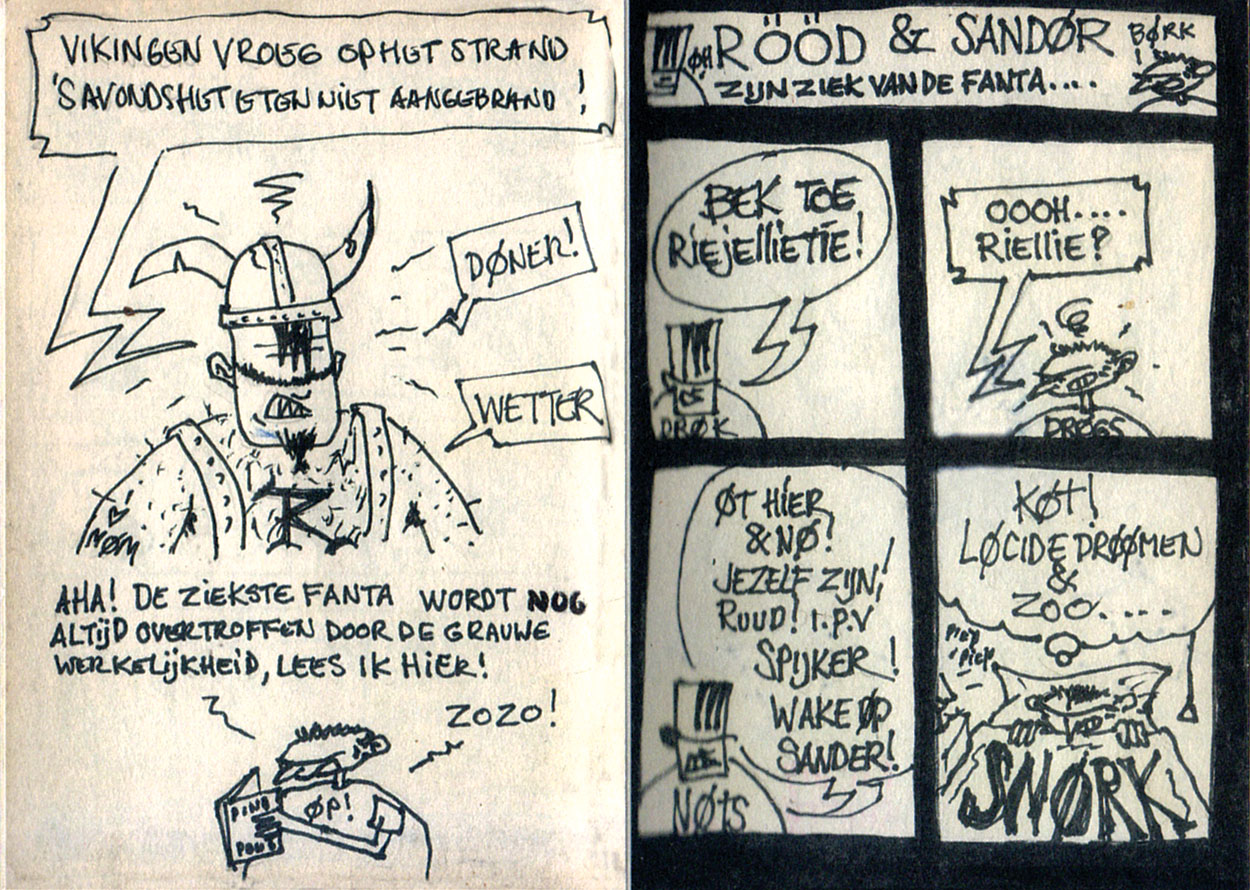 VIKINGEN VROEG OP HET STRAND
'S AVONDS HET ETEN NIET AANGEBRAND!
DØNER!
WETTER
MØM
R
AHA! DE ZIEKSTE FANTA WORDT NOG
ALTIJD OVERTROFFEN DOOR DE GRAUWE
WERKELIJKHEID, LEES IK HIER!
ZOZO!
ØP!
PING
PONG
ØH RÖÖD & SANDØR BØRK
ZIJN ZIEK VAN DE FANTA....
BEK TOE
RIEJELLIETIE!
PRØK
OOOH....
RIELLIE?
PRØGS
ØT HIER
& NØ!
JEZELF ZIJN,
RUUD! I.P.V
SPIJKER!
WAKE ØP
SANDER!
NØTS
KØT!
LØCIDE DRØØMEN
&
ZOO.....
PIEP
PIEP
SNØRK